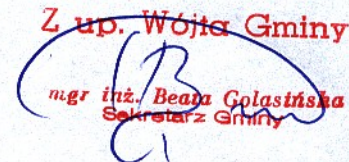 Z up. Wójta Gminy
mgr inż. Beata Golasińska
Sekretarz Gminy